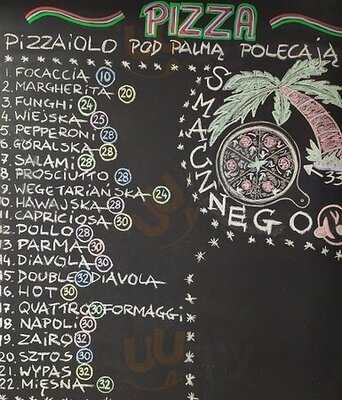 PIZZA
PIZZAIOLO POD PALMĄ POLECAJĄ
1. FOCACCIA 10
2. MARGHERITA 20
3. FUNGHI 24
4. WIEJSKA 25
5 PEPPERONI 28
6. GÓRALSKA 28
7 SALAMI 28
8. PROSCIUTTO 28
9. WEGETARIAŃSKA 24
10. HAWAJSKA 28
11. CAPRICIOSA 30
12. POLLO 28
13 PARMA 30
14. DIAVOLA 30
15 DOUBLE 32 DIAVOLA
16. HOT 30
17. QUATTRO 30 FORMAGGI
18. NAPOLI 30
19. ZAIRO 32
20. SZTOS 30
21. WYPAS 32
22. MIĘSNA 32
SMACZNEGO
35